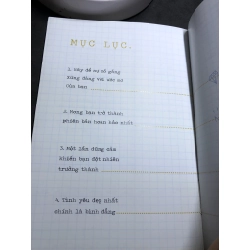 MỤC LỤC.
1. Hãy để sự cố gắng
xứng đáng với ước mơ
của bạn
2. Mong bạn trở thành
phiên bản hoàn hảo nhất
3. Một lần dũng cảm
khiến bạn đột nhiên
trưởng thành
4. Tình yêu đẹp nhất
chính là bình đẳng